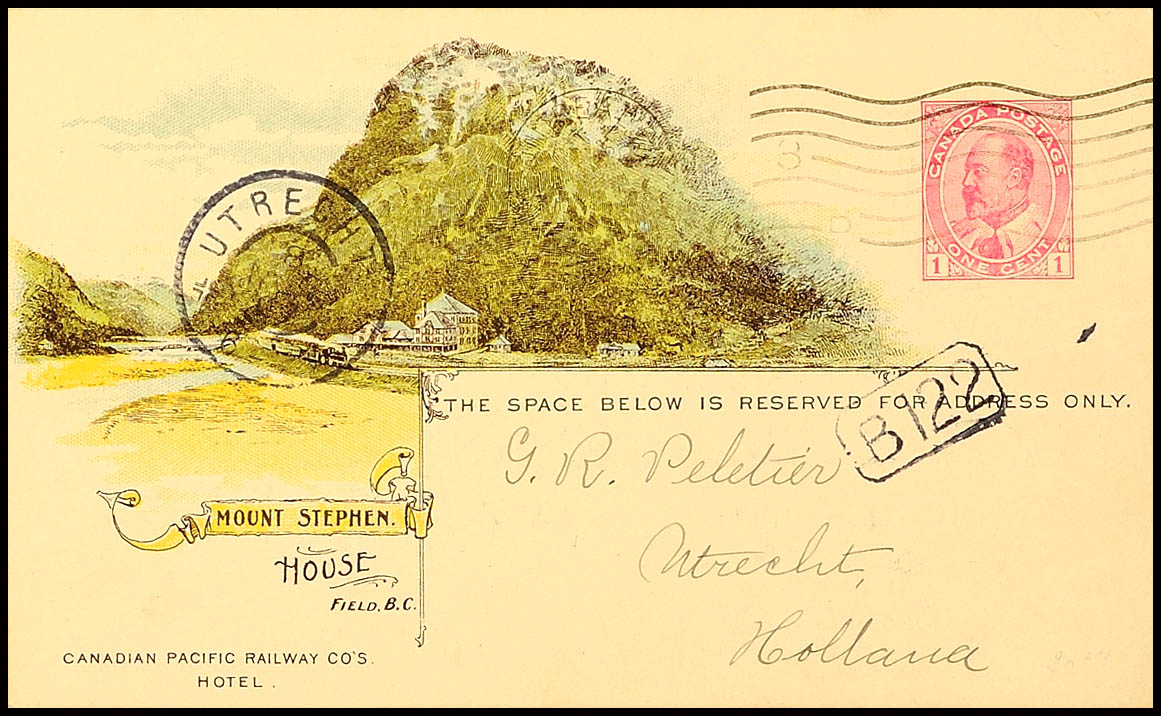 CANADA POSTAGE
1 ONE CENT 1
UTRECH
THE SPACE BELOW IS RESERVED FOR ADDRESS ONLY.
B122
G. R. Peletier
Utrecht,
Holland
MOUNT STEPHEN.
HOUSE
FIELD, B.C.
CANADIAN PACIFIC RAILWAY CO'S.
HOTEL.